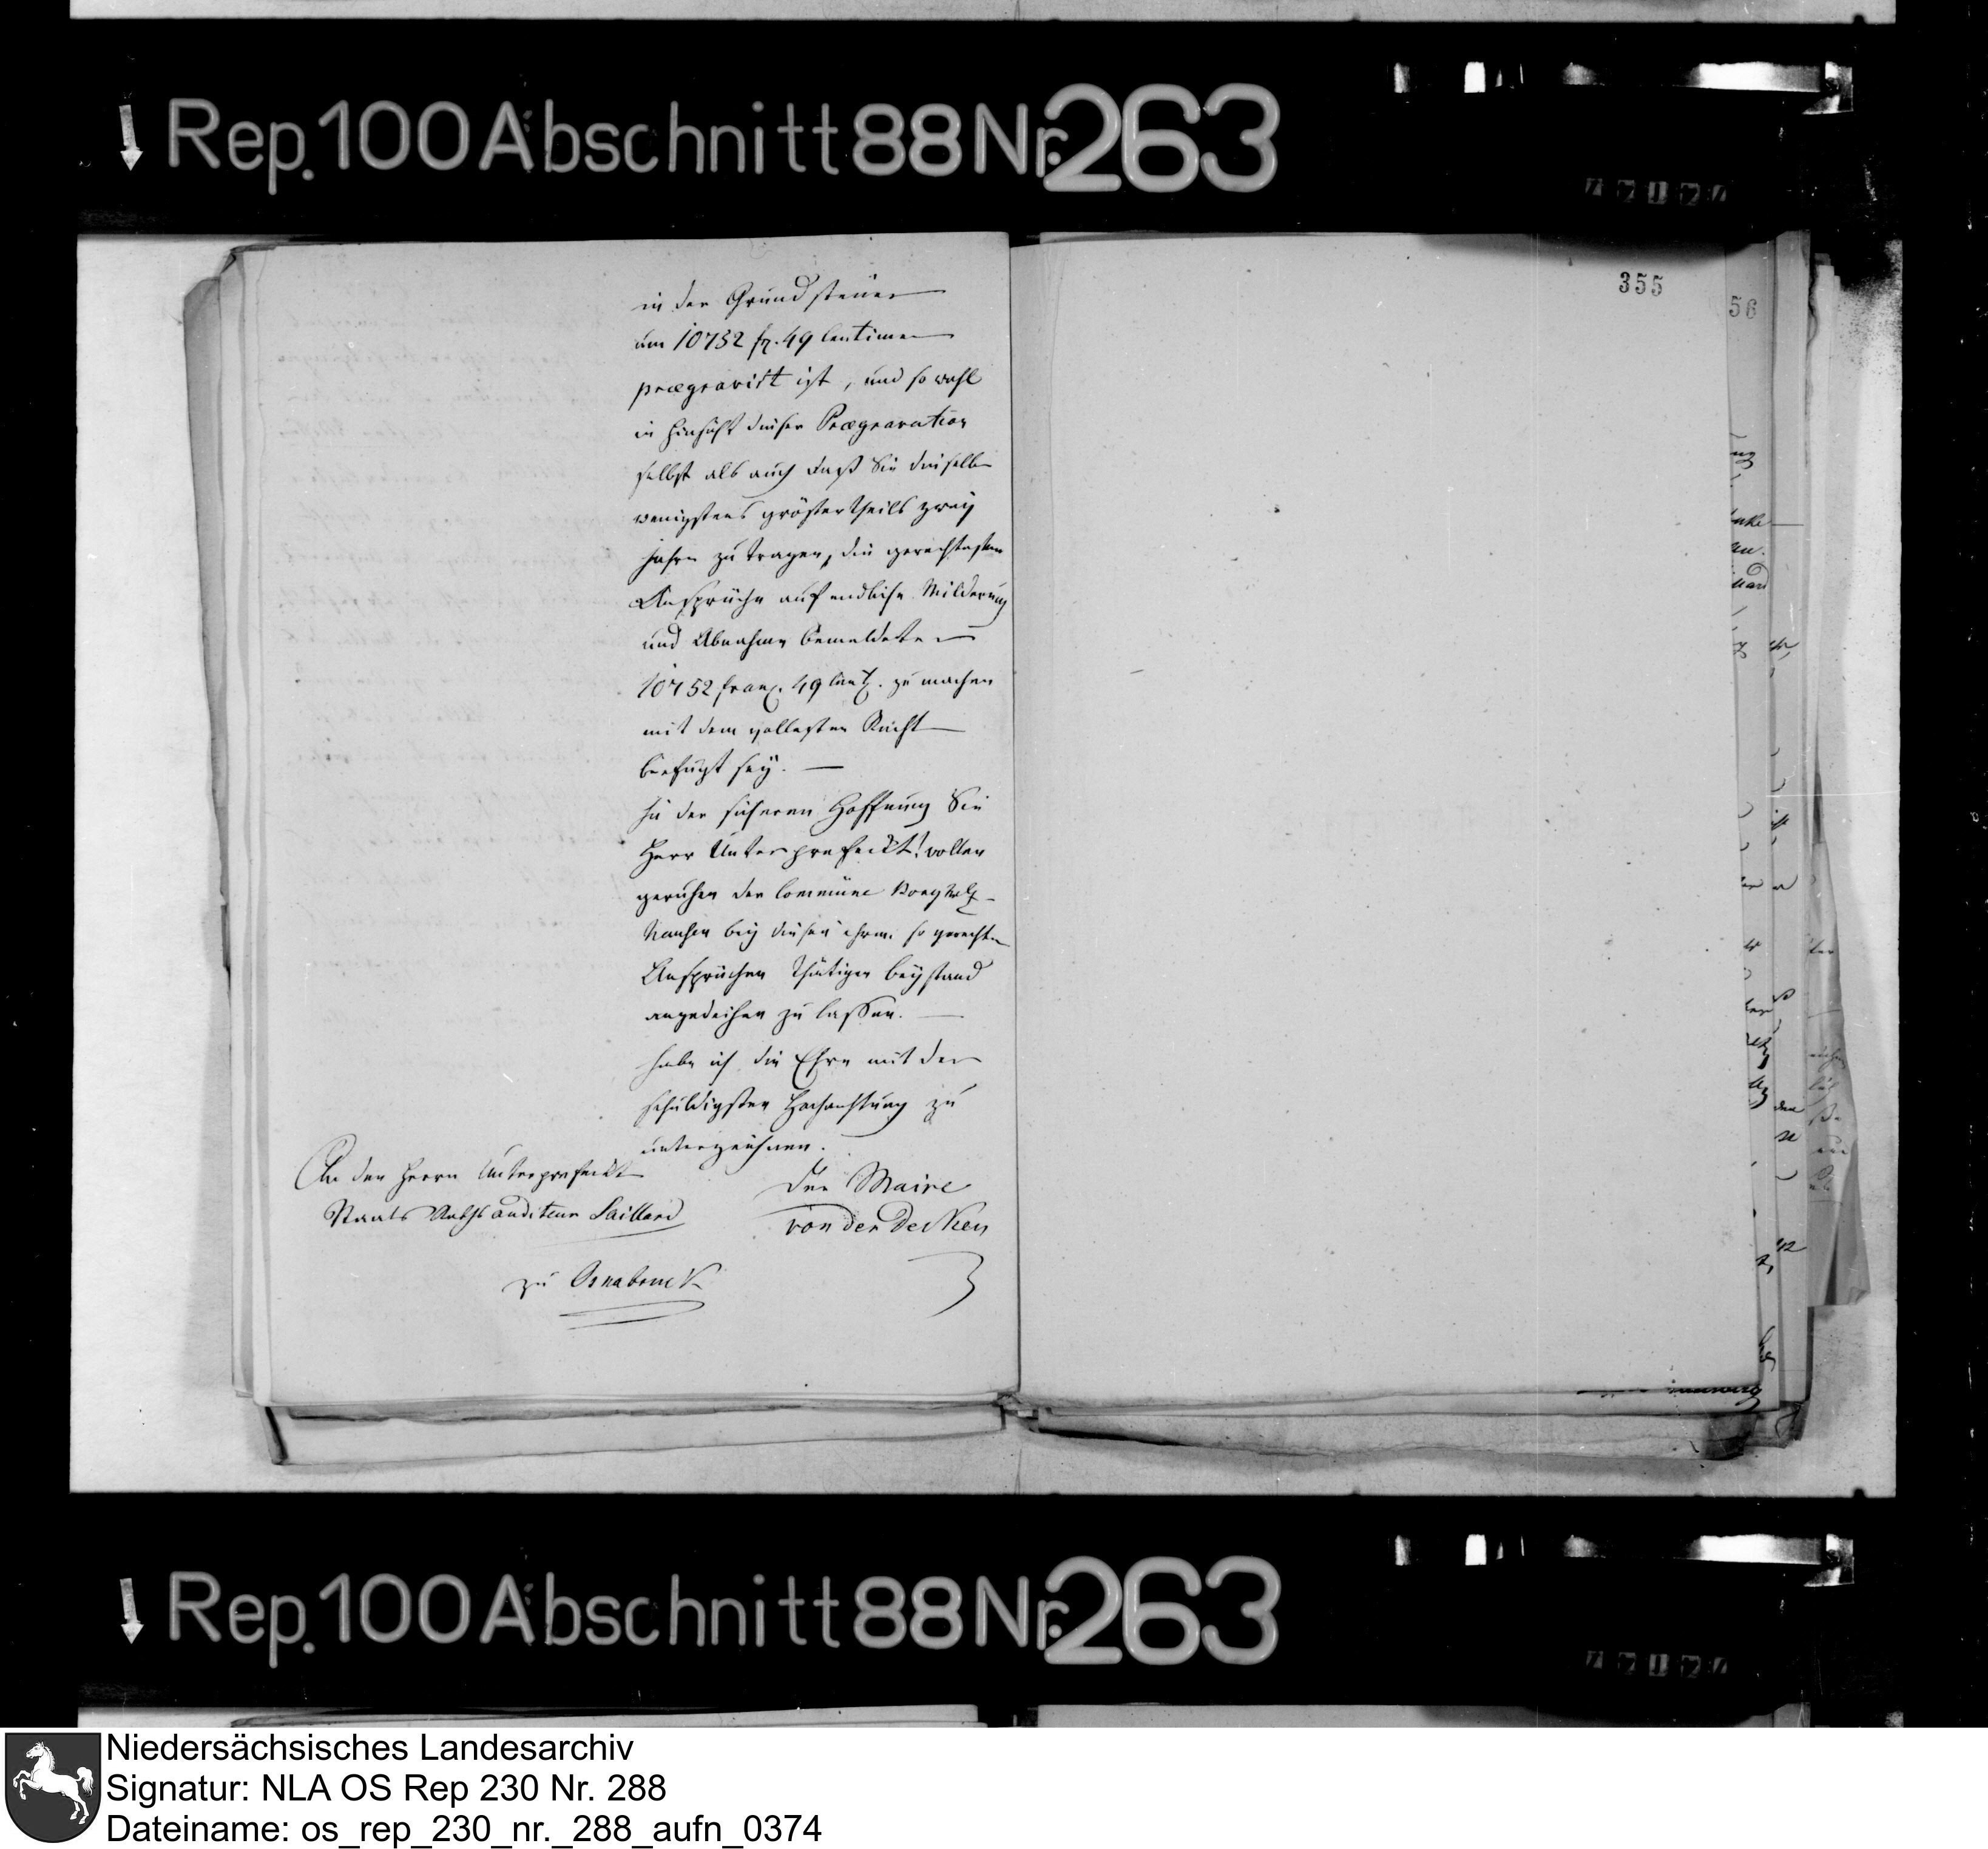 Rep. 100 Abschnitt 88 Nr. 263
355
56
in der Grundsteuer
um 10752 fr. 49 Centimen
praegravirt ist, und so wohl
in Hinsicht dieser Praegravation
selbst als auch daß Sie dieselbe
wenigstens größtertheils zwey
Jahre zu tragen, die gerechtesten
Ansprüche auf endliche Milderung
und Abnahme bemeldeter
10752 franc. 49 Cent. zu machen
mit dem vollesten Recht
befugt sey. —
In der sicheren Hoffnung Sie
Herr Unterprefeckt! wollen
geruhen der Commüne Borgholz-
hausen bey diesen ihren so gerechten
Ansprüchen thätigen beystand
angedeihen zu lassen. —
habe ich die Ehre mit der
schuldigsten Hochachtung zu
unterzeichnen.
Der Maire
von der Decken
An den Herrn Unterprefeckt
Staats Raths auditeur Saillard
zu Osnabruck
Rep. 100 Abschnitt 88 Nr. 263
Niedersächsisches Landesarchiv
Signatur: NLA OS Rep 230 Nr. 288
Dateiname: os_rep_230_nr._288_aufn_0374